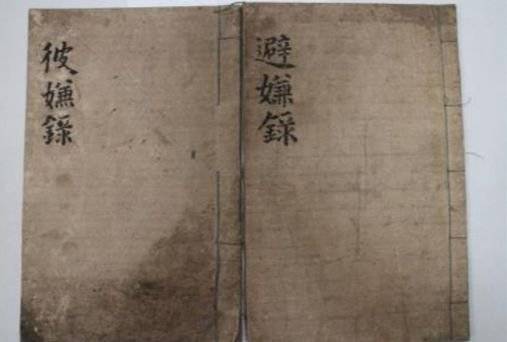 避嫌錄
彼嫌錄